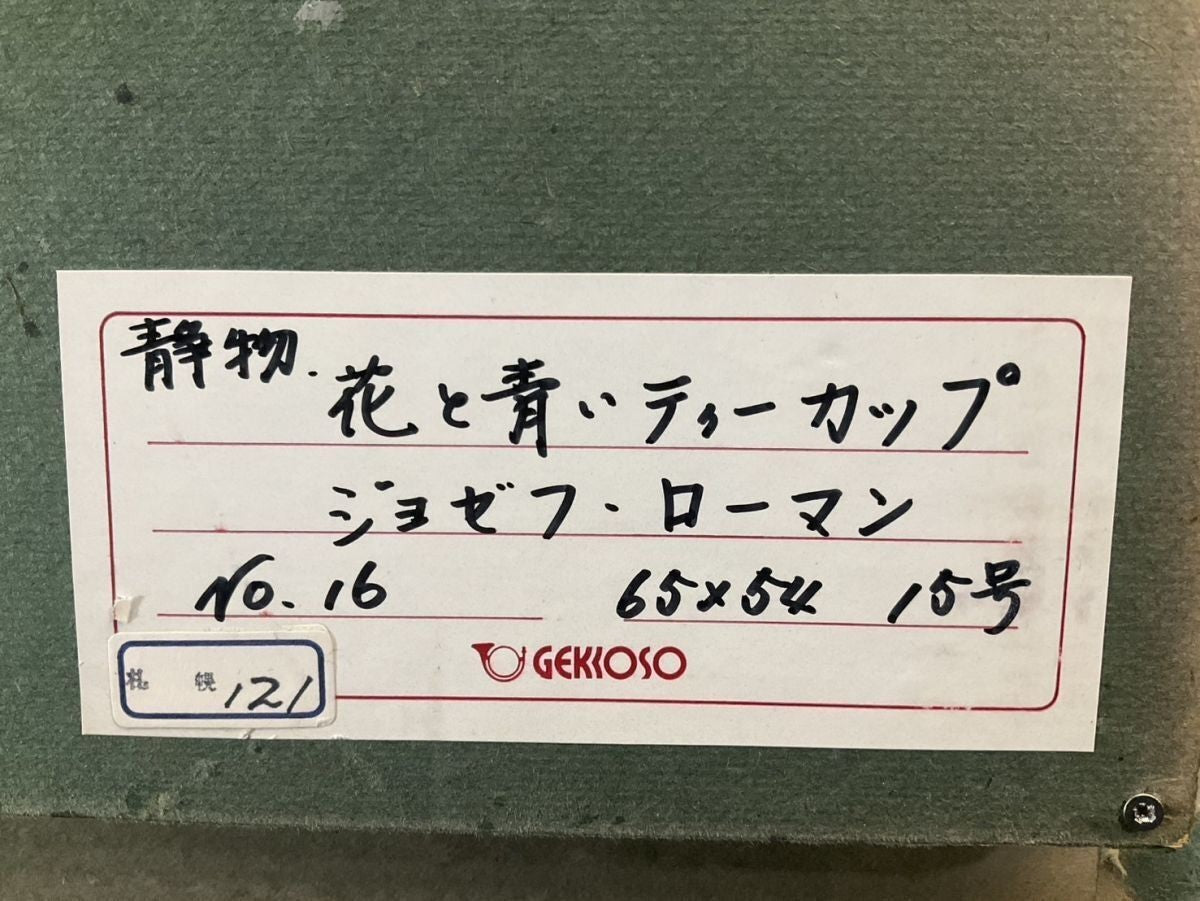 静物.
花と青いティーカップ
ジョゼフ・ローマン
No. 16 65×54 15号
GEKKOSO
札幌 121